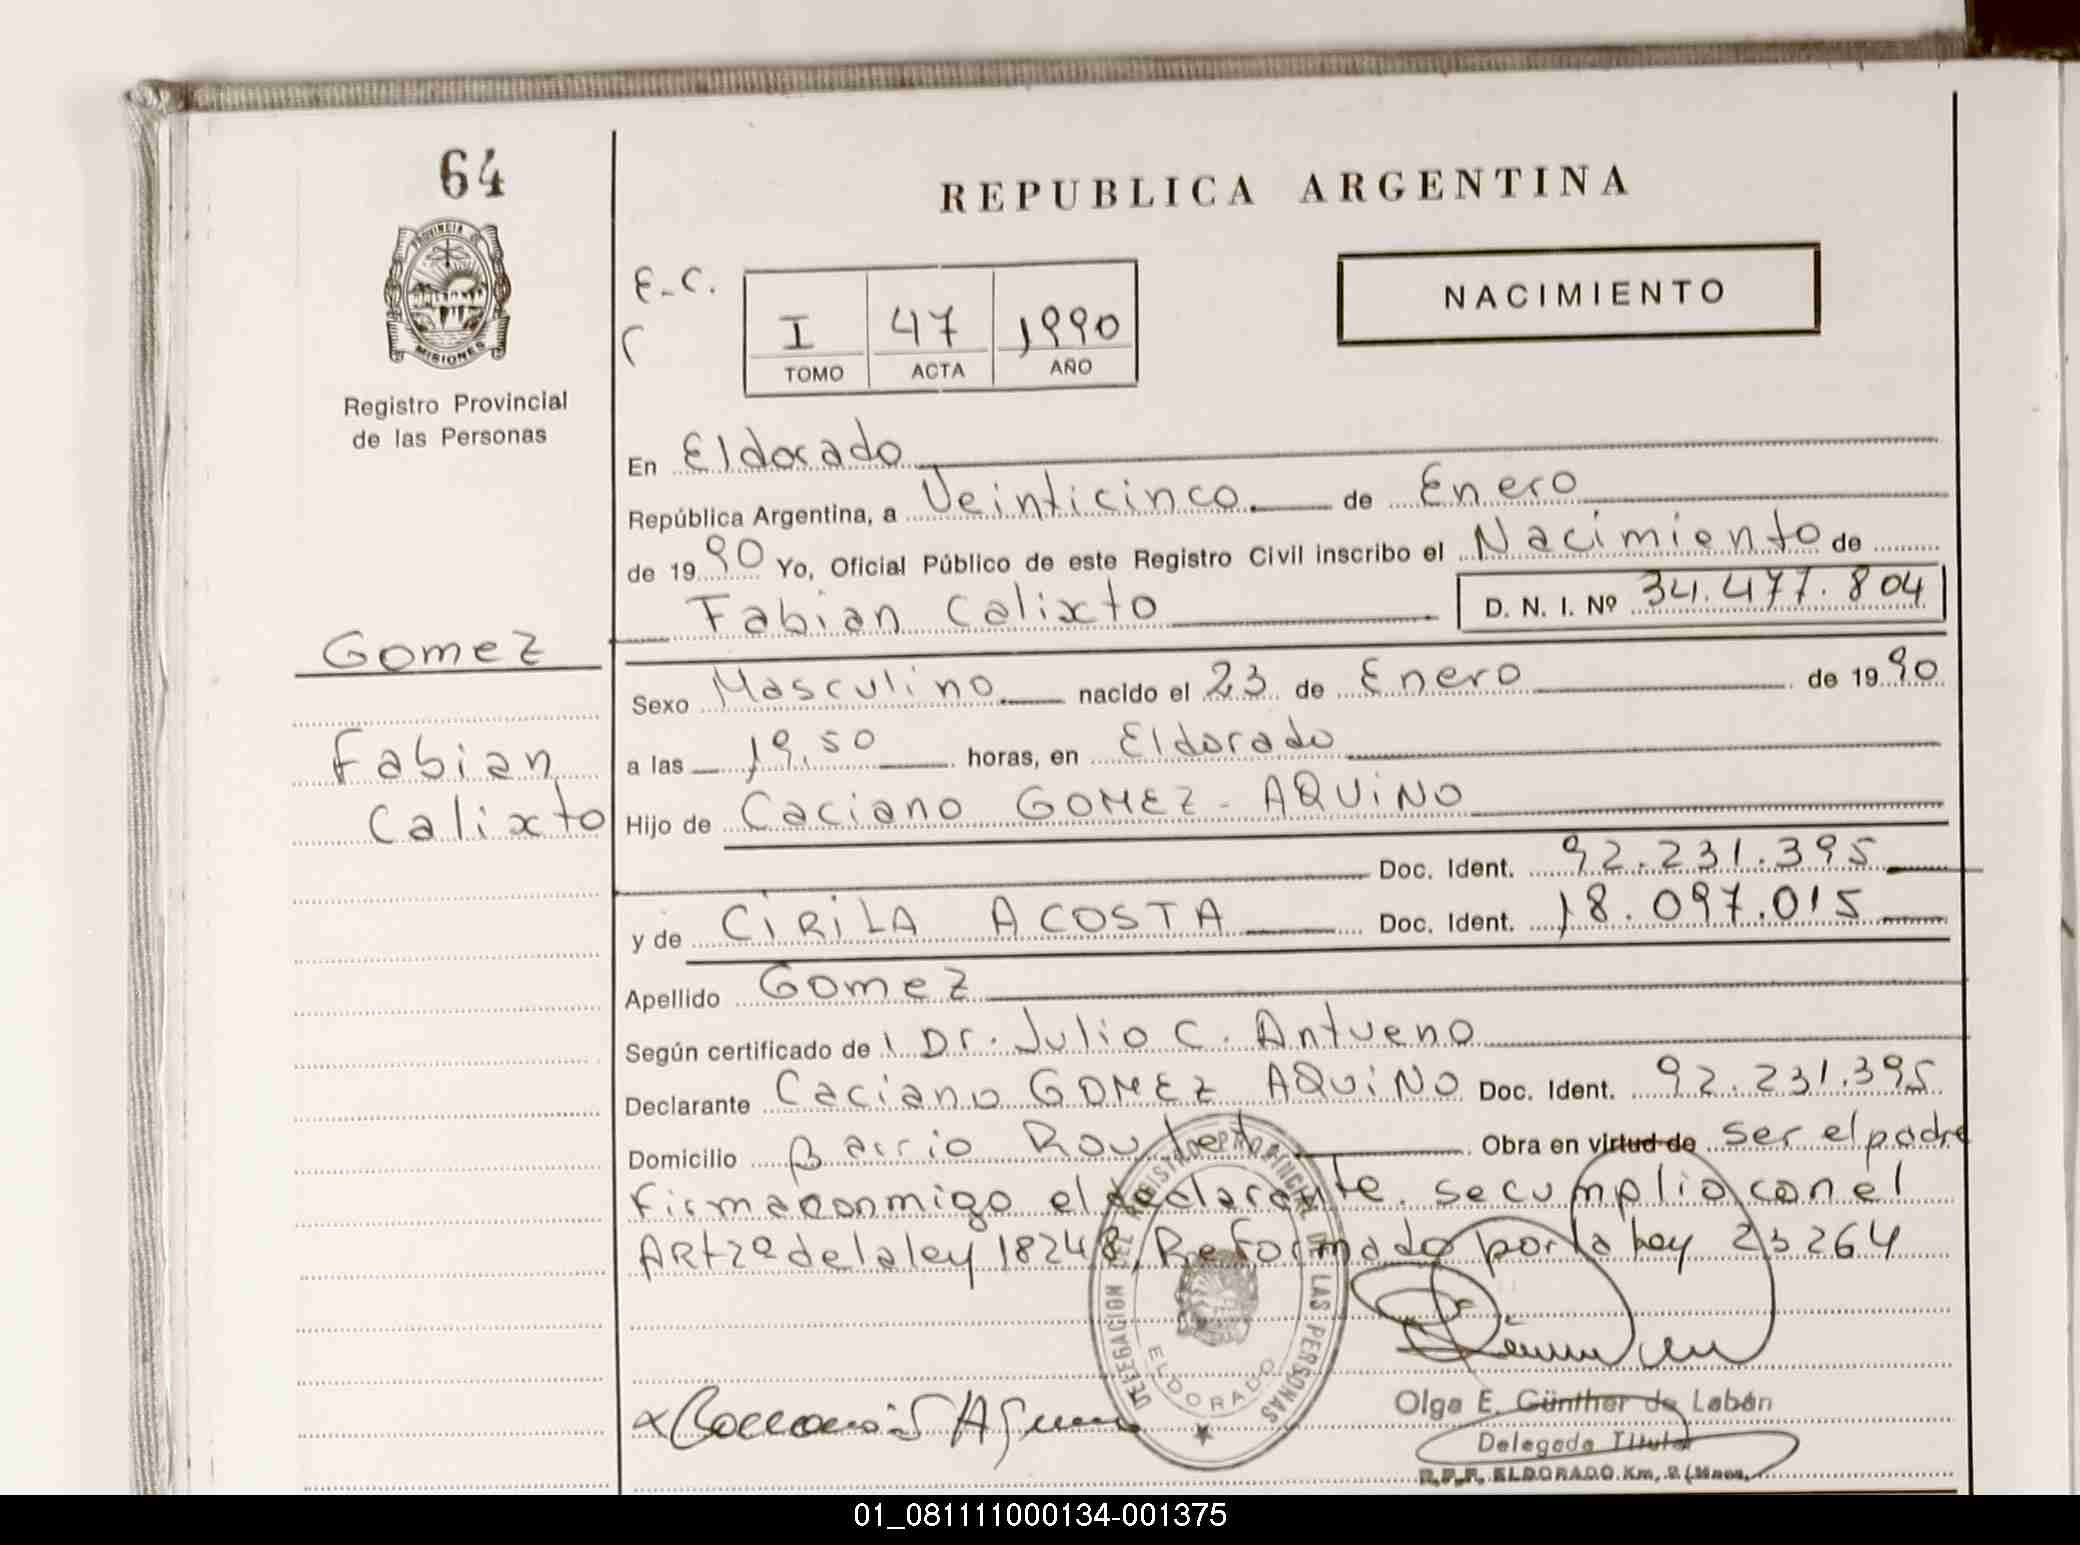 64
PROVINCIA DE
MISIONES
Registro Provincial
de las Personas
Gomez
Fabian
Calixto
REPUBLICA ARGENTINA
E.C.
I 47 1990
TOMO ACTA AÑO
NACIMIENTO
En Eldorado
República Argentina, a Veinticinco de Enero
de 1990 Yo, Oficial Público de este Registro Civil inscribo el Nacimiento de
Fabian Calixto D. N. I. Nº 34.477.804
Sexo Masculino nacido el 23 de Enero de 1990
a las 19,50 horas, en Eldorado
Hijo de Caciano GOMEZ - AQUiNO
Doc. Ident. 92.231.395
y de CiRiLA ACOSTA Doc. Ident. 18.097.015
Apellido Gomez
Según certificado de Dr. Julio C. Antueno
Declarante Caciano GOMEZ AQUiNO Doc. Ident. 92.231.395
Domicilio Barrio Obra en virtud de ser el padre
Firma conmigo el declarante. se cumplio con el
ARt 2º de la ley 18248, Reformado por la ley 23264
DELEGACION DEL REGISTRO PROVINCIAL DE LAS PERSONAS
ELDORADO
Olga E. Günther de Labán
Delegada Titular
R.P.P. ELDORADO Km. 9 (Mnes.
01_081111000134-001375